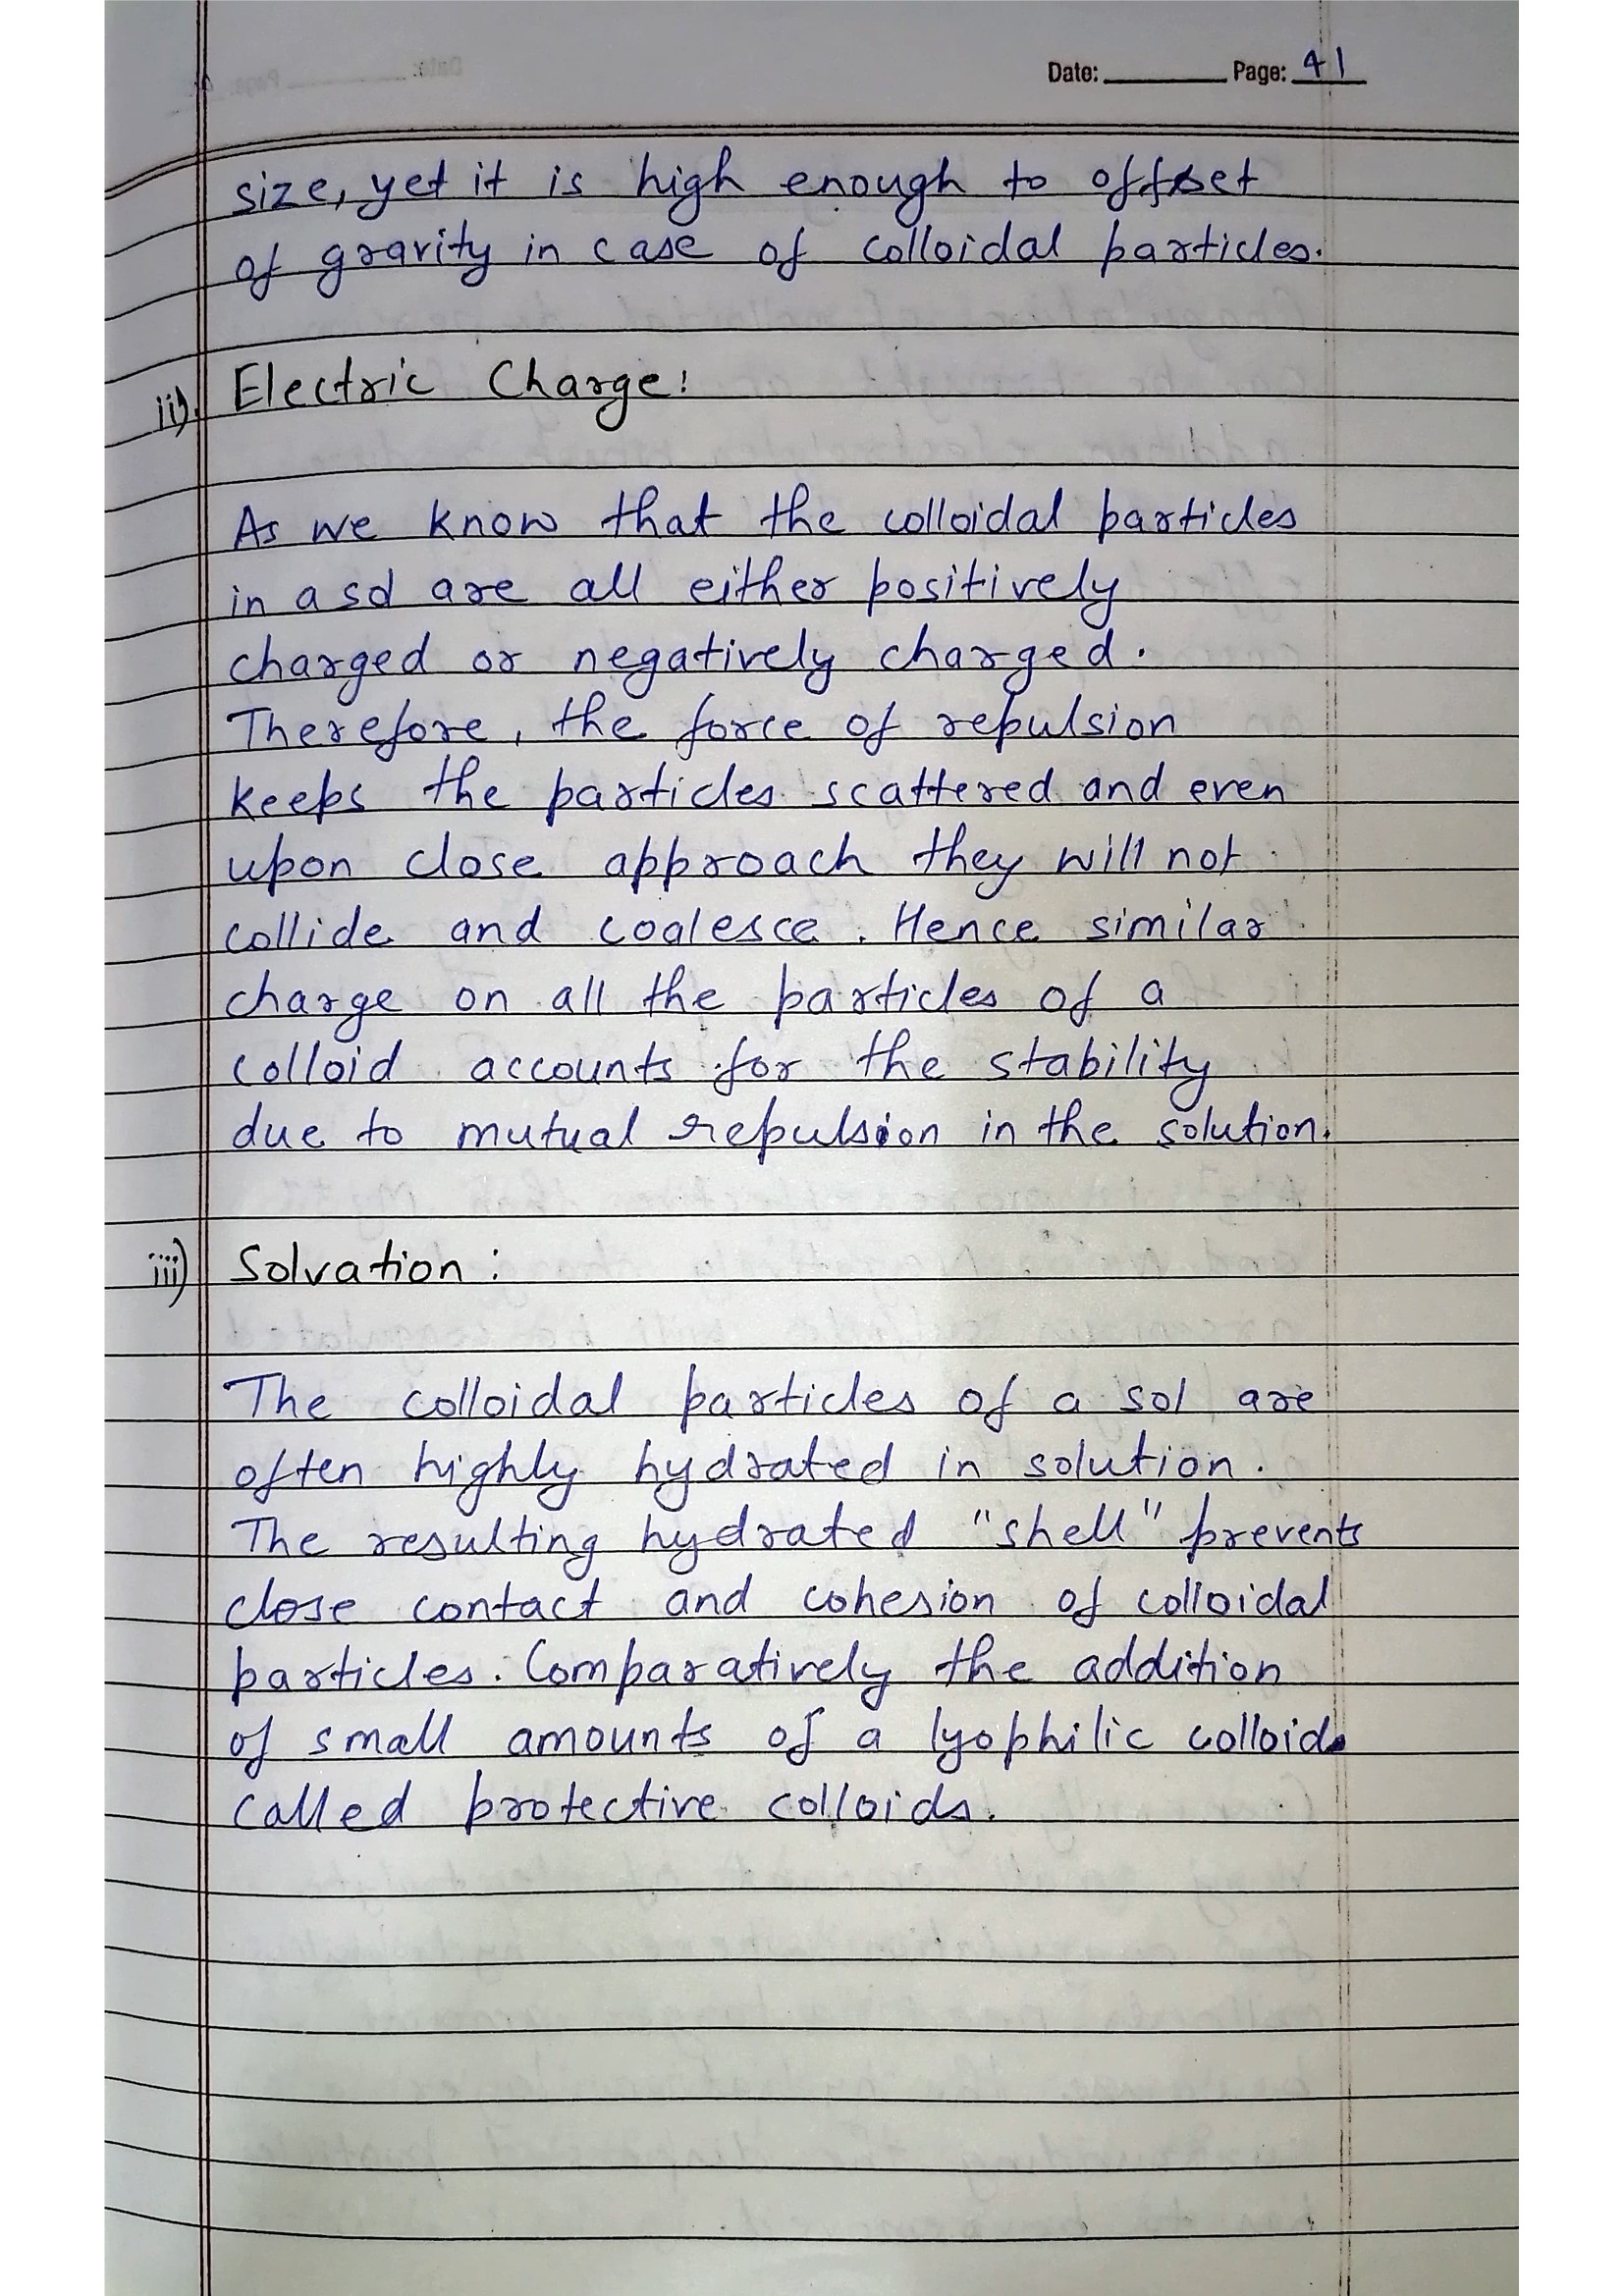 Date: Page: 41
size, yet it is high enough to offset
of gravity in case of colloidal particles.
ii). Electric Charge:
As we know that the colloidal particles
in a sol are all either positively
charged or negatively charged.
Therefore, the force of repulsion
keeps the particles scattered and even
upon close approach they will not
collide and coalesce. Hence similar
charge on all the particles of a
colloid accounts for the stability
due to mutual repulsion in the solution.
iii) Solvation:
The colloidal particles of a sol are
often highly hydrated in solution.
The resulting hydrated "shell" prevents
close contact and cohesion of colloidal
particles. Comparatively the addition
of small amounts of a lyophilic colloid
called protective colloids.